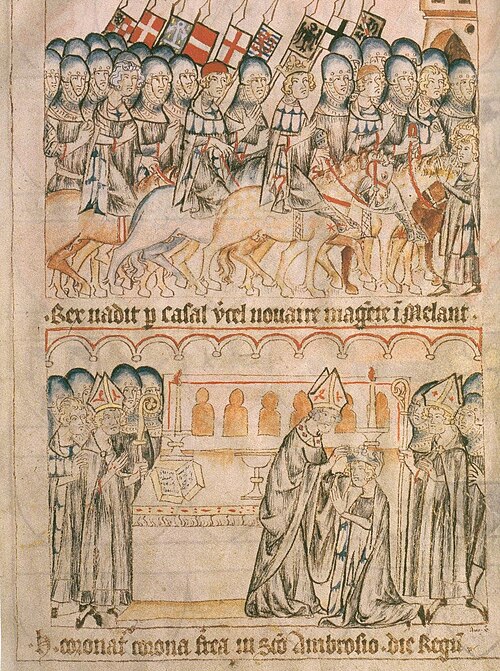 Rex vadit p Casal v̄cel novaire magēte ī Melant.
H. coronat̄ corona frea in sc̄o Ambrosio. die Regū